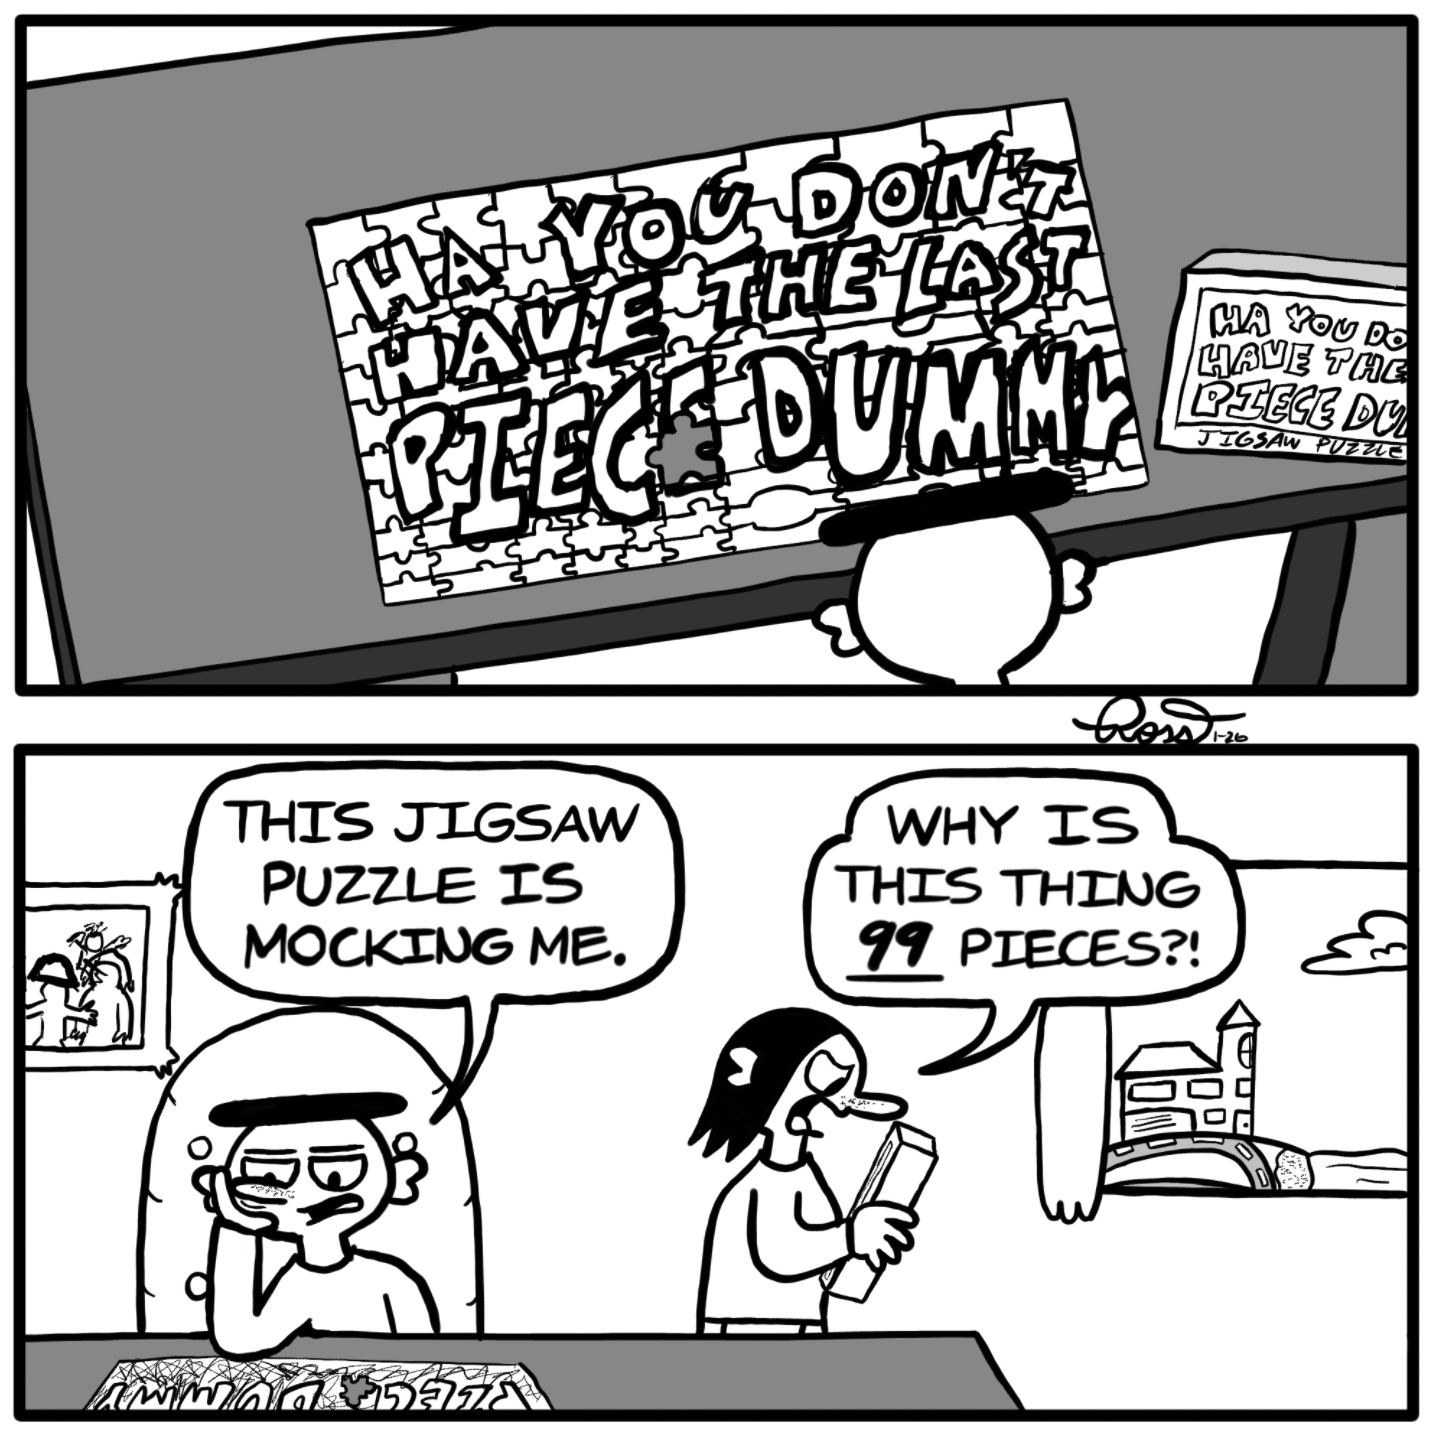 HA YOU DON'T
HAVE THE LAST
PIECE DUMMY
HA YOU DO
HAVE THE
PIECE DU
JIGSAW PUZZLE
Ross 1-26
THIS JIGSAW
PUZZLE IS
MOCKING ME.
WHY IS
THIS THING
99 PIECES?!
PIECE DUMMY